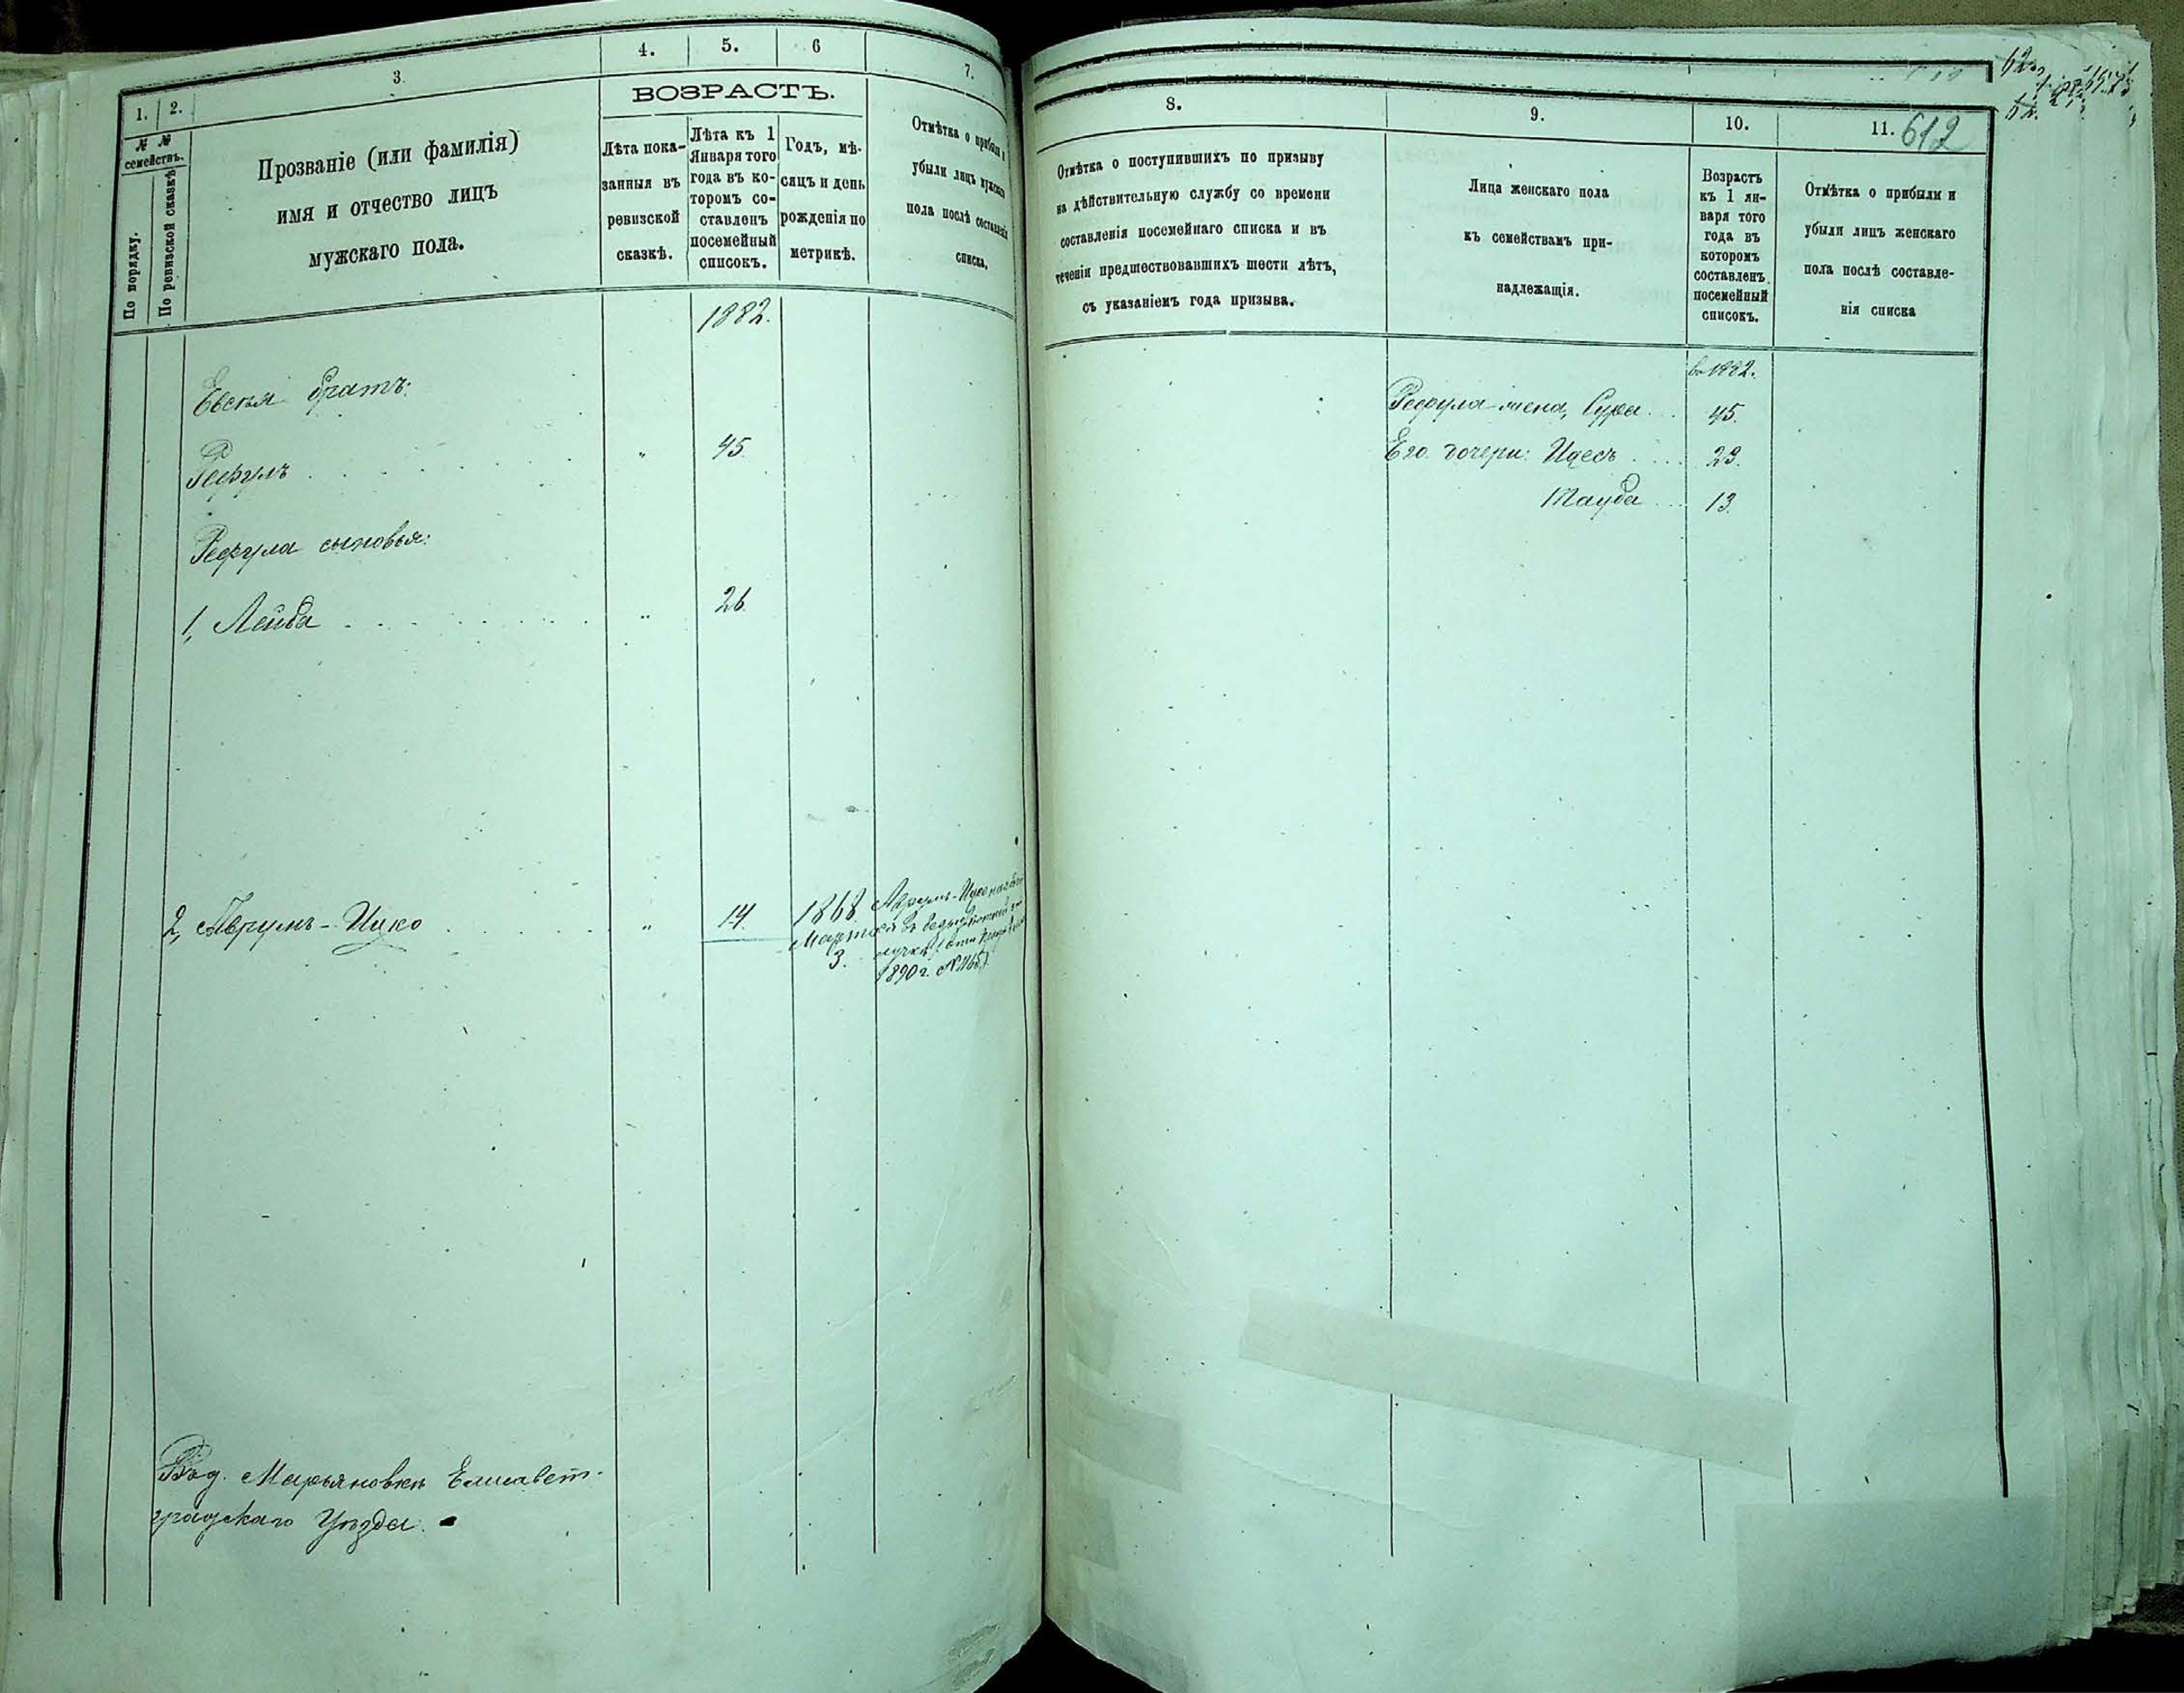 1. 2. 3. 4. 5. 6 7.
№ № семействъ.
По порядку.
По ревизской сказкѣ
Прозваніе (или фамилія)
имя и отчество лицъ
мужскаго пола.
ВОЗРАСТЪ.
Лѣта пока-
занныя въ
ревизской
сказкѣ.
Лѣта къ 1
Января того
года въ ко-
торомъ со-
ставленъ
посемейный
списокъ.
Годъ, мѣ-
сяцъ и день
рожденія по
метрикѣ.
Отмѣтка о прибыли и
убыли лицъ мужскаго
пола послѣ составленія
списка.
1882.
братъ:
45.
сыновья:
1, Лейба 26.
2, Аврумъ-Ицко 14. 1868
Марта
3.
1890 г. №
Марьяновкѣ Елисавет-
градскаго Уѣзда.
8. 9. 10. 11.
612
Отмѣтка о поступившихъ по призыву
на дѣйствительную службу со времени
составленія посемейнаго списка и въ
теченіи предшествовавшихъ шести лѣтъ,
съ указаніемъ года призыва.
Лица женскаго пола
къ семействамъ при-
надлежащія.
Возрастъ
къ 1 ян-
варя того
года въ
которомъ
составленъ
посемейный
списокъ.
Отмѣтка о прибыли и
убыли лицъ женскаго
пола послѣ составле-
нія списка
1882.
жена, Сура 45.
Его дочери: Идесъ 23.
Тауба 13.